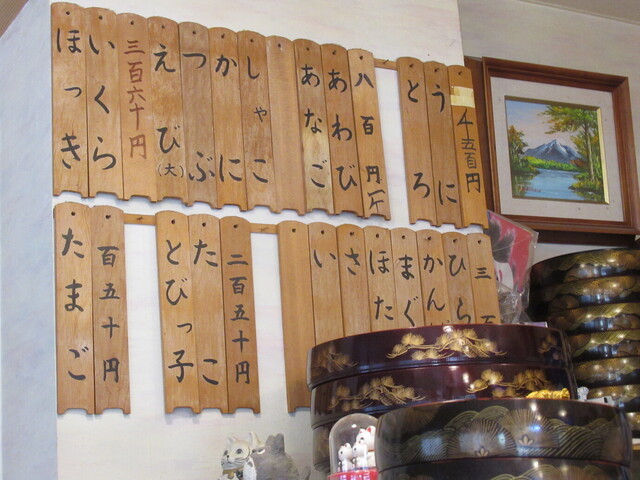 千五百円
うに
とろ
八百円
あわび
あなご
しゃこ
かに
つぶ
えび(大)
三百六十円
いくら
ほっき
三百
ひら
かん
まぐ
ほた
さ
い
二百五十円
たこ
とびっ子
百五十円
たまご